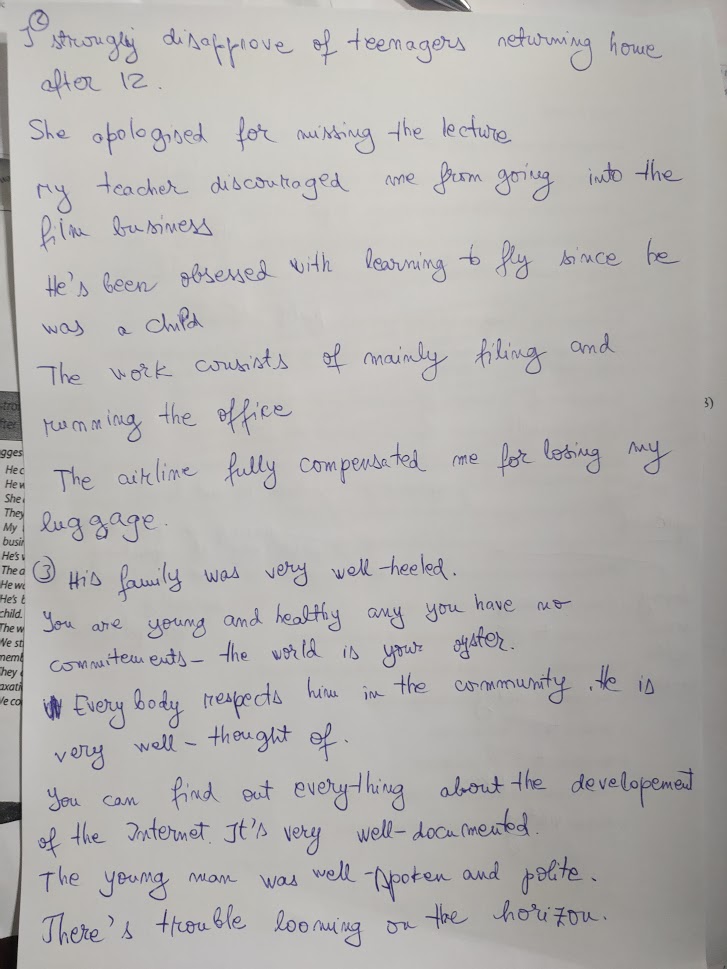 ②
I strongly disapprove of teenagers returning home
after 12.
She apologised for missing the lecture
My teacher discouraged me from going into the
film business
He's been obsessed with learning to fly since he
was a child
The work consists of mainly filing and
running the office
3)
The airline fully compensated me for losing my
luggage.
③ His family was very well-heeled.
You are young and healthy any you have no
commitements - the world is your oyster.
Everybody respects him in the community. He is
very well-thought of.
You can find out everything about the developement
of the Internet. It's very well-documented.
The young man was well-spoken and polite.
There's trouble looming on the horizon.
gges
He c
He w
She
They
My
busi
He's
The d
He wo
He's b
child.
The w
We st
memb
They
axati
We co